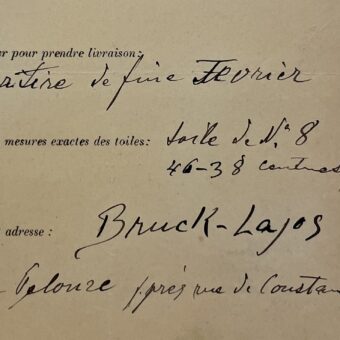 er pour prendre livraison:
artire de fine Fevrier
mesures exactes des toiles: toile de Nº 8
46-38 centimes
adresse: Bruck-Lajos
Pelouze près rue de Constan